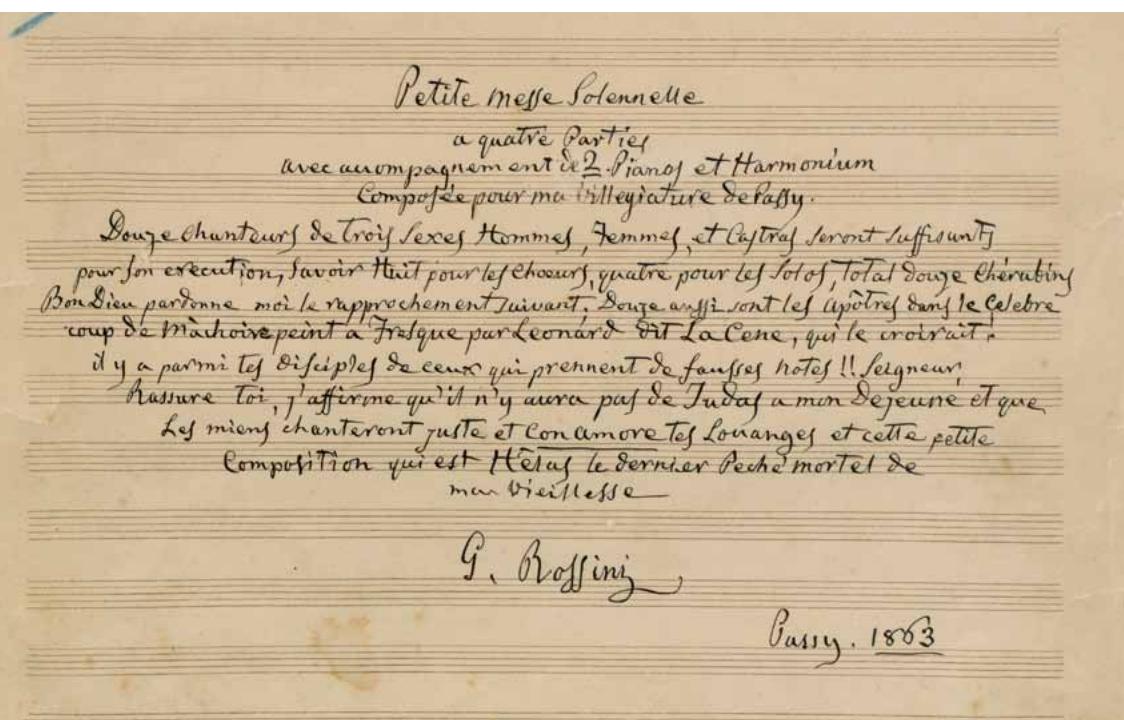 Petite messe Solennelle
a quatre Parties
avec accompagnement de 2 Pianos et Harmonium
Composée pour ma villegiature de Passy.
Douze chanteurs de trois Sexes Hommes, Femmes, et Castras seront suffisants
pour son execution, Savoir Huit pour les Choeurs, quatre pour les Solos, total douze Chérubins
Bon Dieu pardonne moi le rapprochement suivant, Douze aussi sont les apôtres dans le Celebre
coup de Mâchoire peint a Fresque par Leonard dit La Cene, qui le croirait.
il y a parmi tes disciples de ceux qui prennent de fausses notes!! Seigneur,
Rassure toi, j'affirme qu'il n'y aura pas de Judas a mon Dejeuné et que
Les miens chanteront juste et Con amore tes Louanges et cette petite
Composition qui est Hélas le dernier Peché mortel de
ma Vieillesse
G. Rossini
Passy. 1863